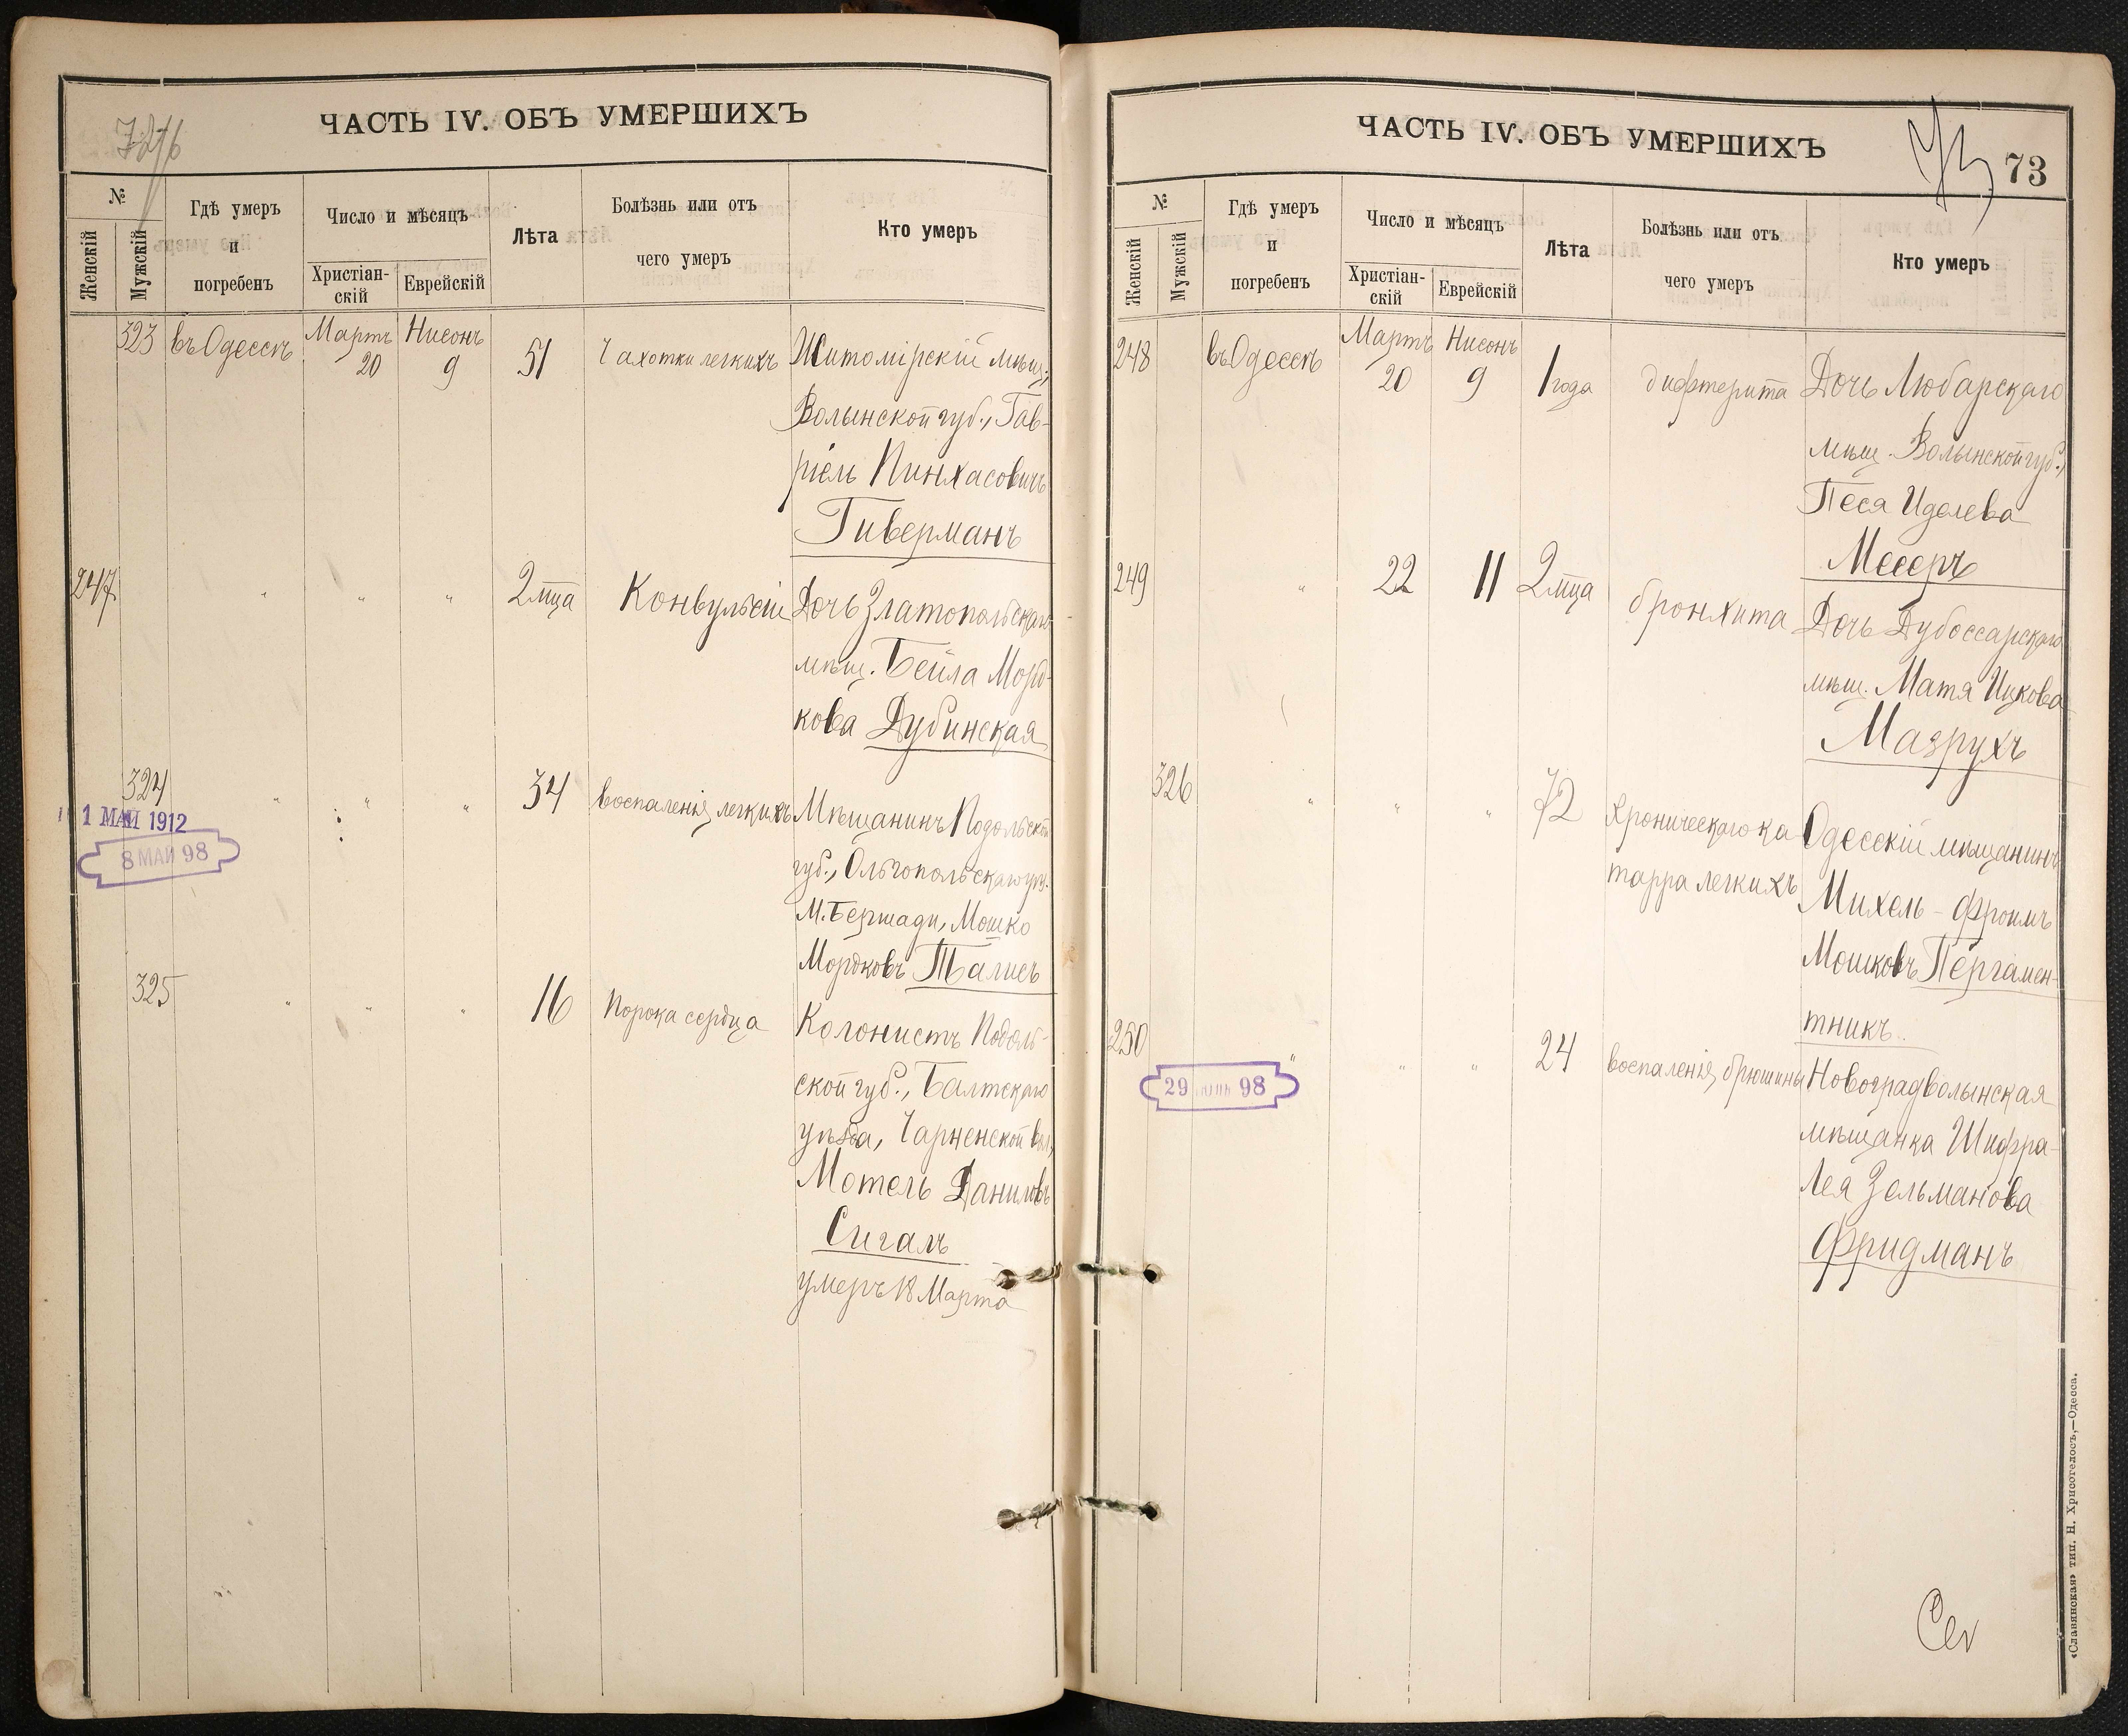 ЧАСТЬ IV. ОБЪ УМЕРШИХЪ
№
Женскій
Мужскій
Гдѣ умеръ
и
погребенъ
Число и мѣсяцъ
Христіан-
скій
Еврейскій
Лѣта
Болѣзнь или отъ
чего умеръ
Кто умеръ
323 въ Одессѣ Мартъ 20 Нисонъ 9 51 Чахотки легкихъ Житомірскій мѣщ.,
Волынской губ., Гав-
ріель Пинхасовичъ
Гиверманъ
247 " " " 2 мца Конвульсіи Дочь Златопольскаго
мѣщ. Бейла Морд-
кова Дубинская
324 " " " 34 воспаленія легкихъ Мѣщанинъ Подольской
губ., Ольгопольскаго уѣз.
М. Бершади, Мошко
Мордковъ Талисъ
1 МАЙ 1912
8 МАЙ 98
325 " " " 16 Порока сердца Колонистъ Подоль-
ской губ., Балтскаго
уѣзда, Чарненской вол.,
Мотель Даниловъ
Сигалъ
умеръ 18 Марта
ЧАСТЬ IV. ОБЪ УМЕРШИХЪ
73
73
№
Женскій
Мужскій
Гдѣ умеръ
и
погребенъ
Число и мѣсяцъ
Христіан-
скій
Еврейскій
Лѣта
Болѣзнь или отъ
чего умеръ
Кто умеръ
248 въ Одессѣ Мартъ 20 Нисонъ 9 1 года дифтерита Дочь Любарскаго
мѣщ. Волынской губ.,
Песя Иделева
Месеръ
249 " 22 11 2 мца бронхита Дочь Дубоссарскаго
мѣщ. Матя Ицкова
Мазрухъ
326 " " " 72 Хроническаго ка- Одесскій мѣщанинъ
тарра легкихъ Михель-Фроимъ
Мошковъ Пергамен-
тникъ
250 " " " 24 воспаленія брюшины Новоградволынская
мѣщанка Шифра-
Лея Зельманова
Фридманъ
29 ІЮНЬ 98
«Славянская» тип. Н. Хрисогелосъ,—Одесса.